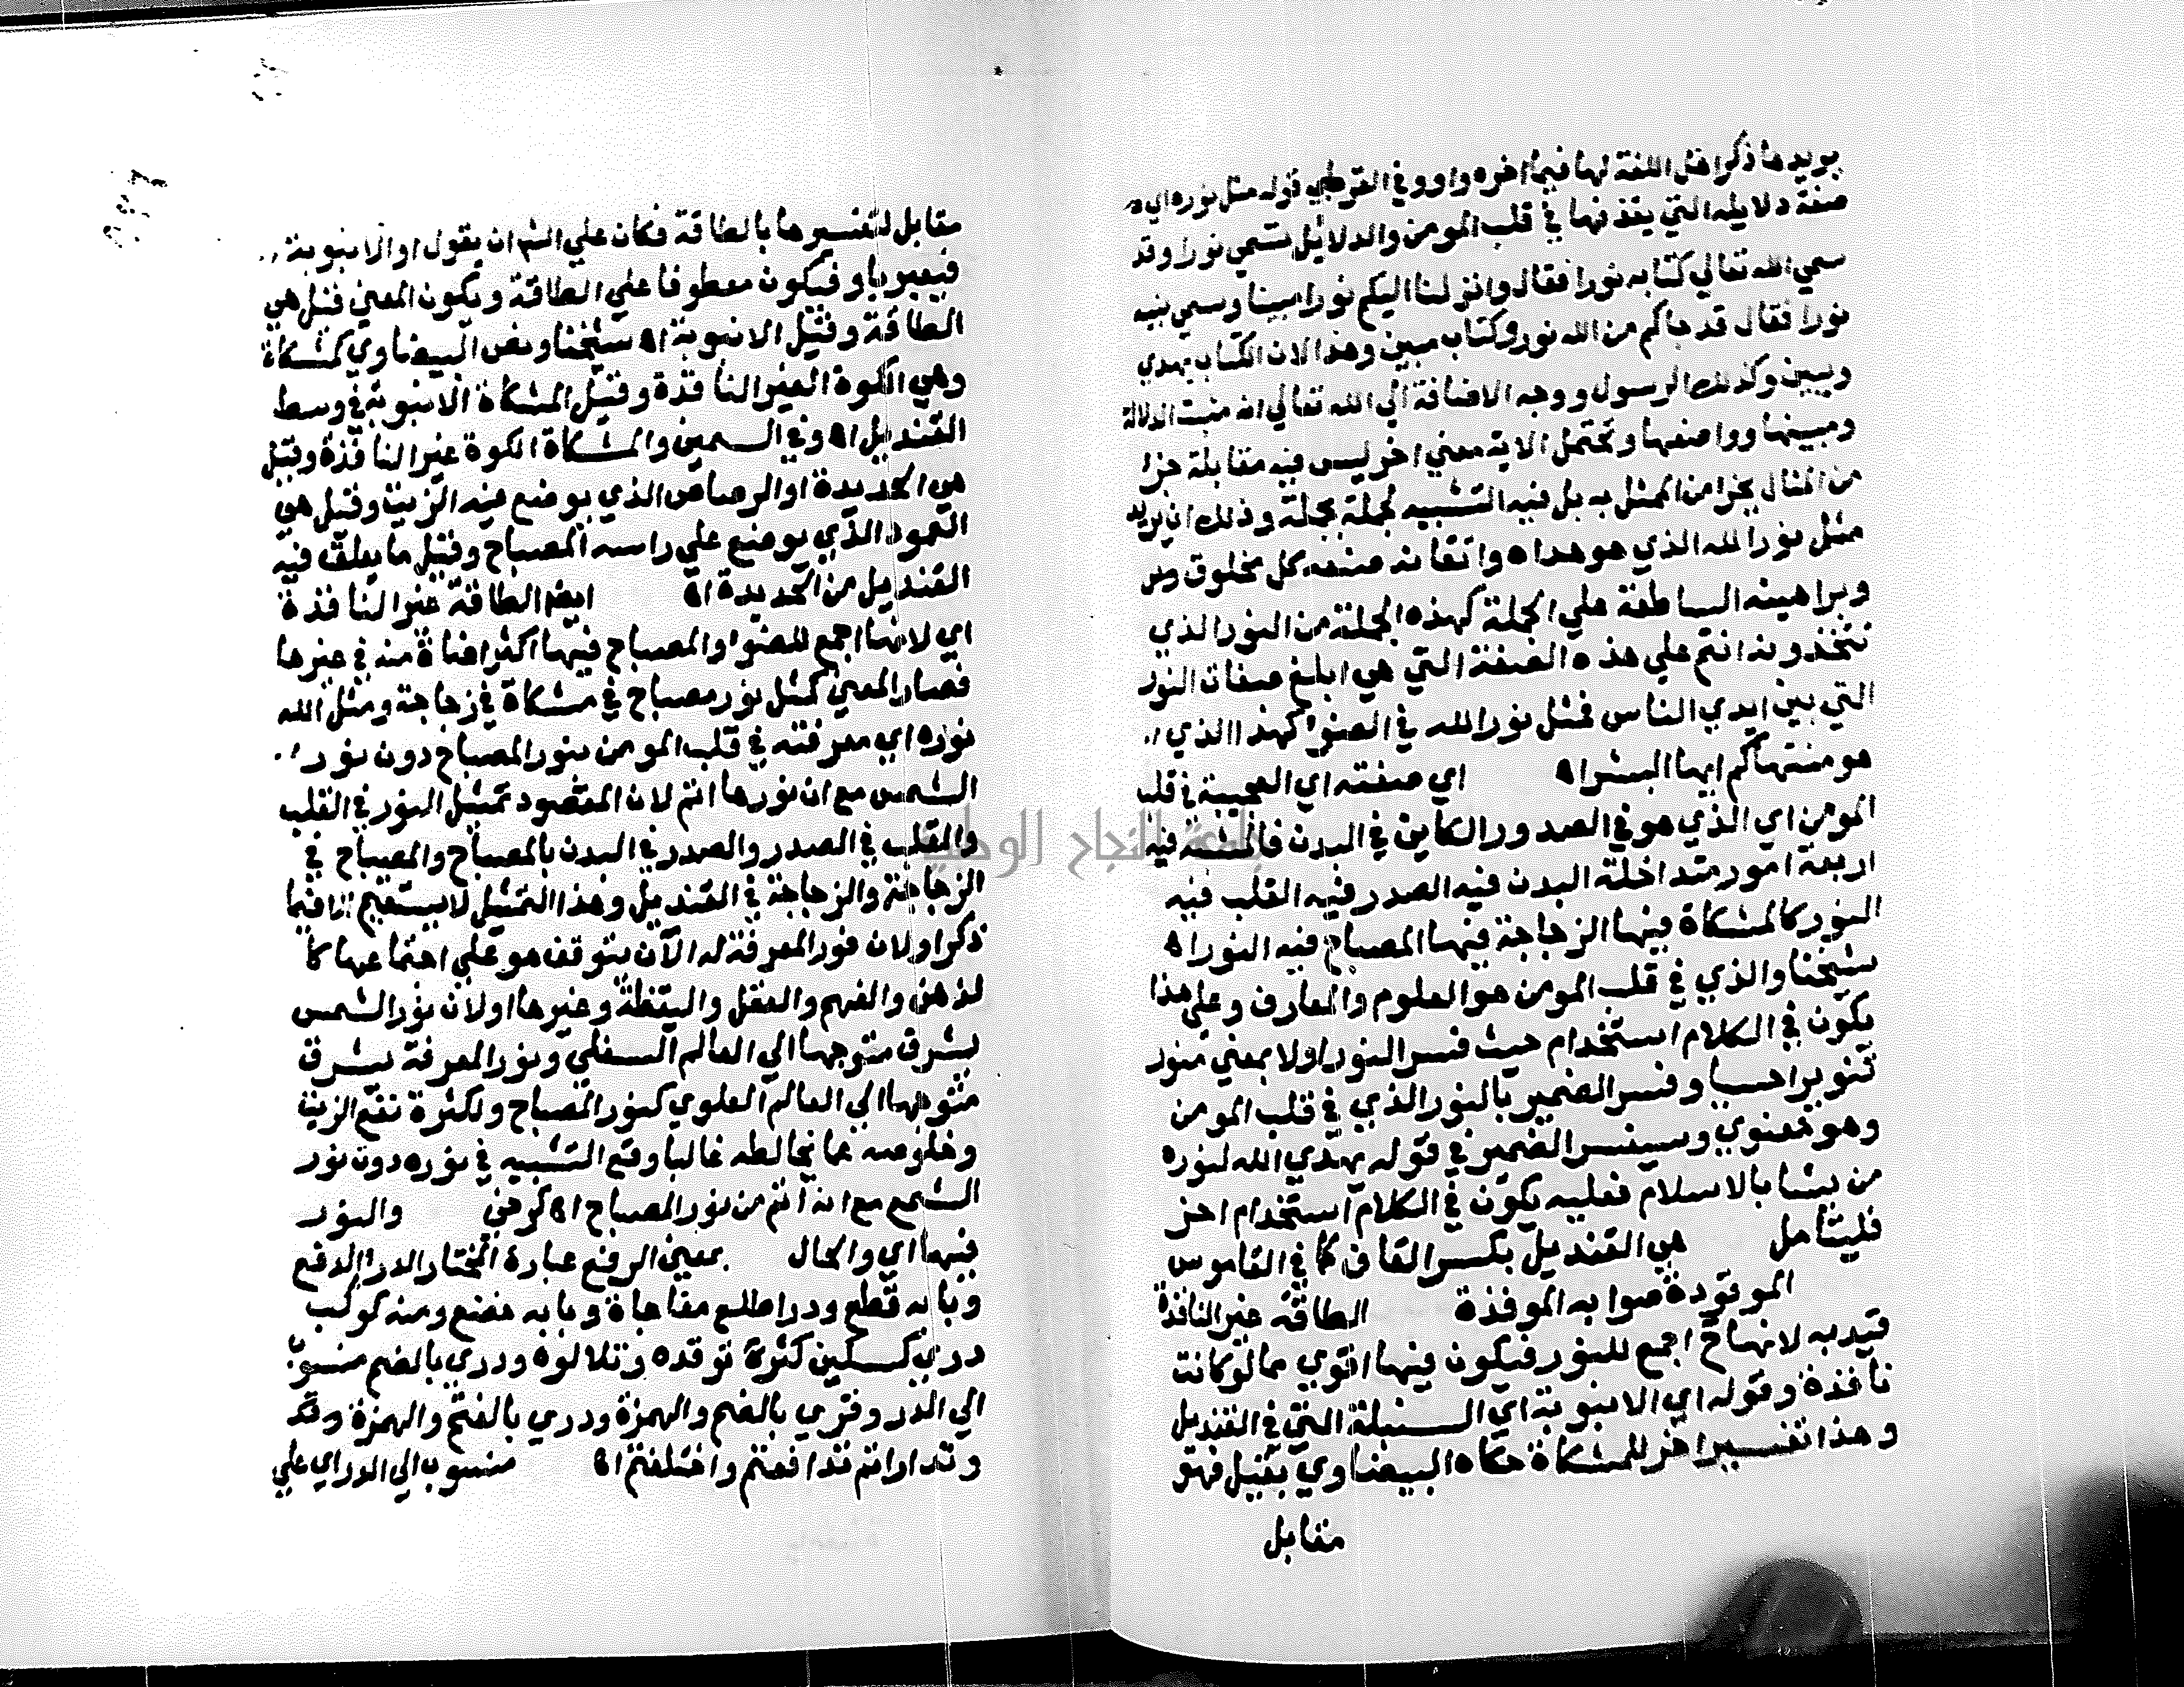 يريدها ذكر اهل اللغة لها فيما اخره واو وفي القرطبي قوله مثل نوره اي
صفة دلايله التي يقذفها في قلب المومن والدلايل تسمي نورا وقد
سمي الله تعالي كتابه نورا فقال وانزلنا اليكم نورا مبينا وسمي نبيه
نورا فقال قد جاكم من الله نور وكتاب مبين وهذا لان الكتاب يهدي
ويبين وكذلك الرسول ووجه الاضافة الي الله تعالي انه مثبت الدلالة
ومبينها وواضعها وتحتمل الاية معني اخر ليس فيه مقابلة جزء
من المثال بجزا من الممثل به بل فيه التشبيه لجملة بجملة وذلك ان يريد
مثل نور الله الذي هو هداه واتقانه صنعه كل مخلوق
وبراهينه الساطعة علي الجملة كهذه الجملة من النور الذي
تتخذونه انتم علي هذه الصفة التي هي ابلغ صفات النور
التي بين ايدي الناس فمثل نور الله في الضوء كهذا الذي
هو منتهاكم ايها البشر اه اي صفته اي العجيبة في قلب
المومن اي الذي هو في الصدور الكاين في البدن فالمشبه فيه
اربعة امور متداخلة البدن فيه الصدر فيه القلب فيه
النور كالمشكاة فيها الزجاجة فيها المصباح فيه النور اه
شيخنا والذي في قلب المومن هو العلوم والمعارف وعلي هذا
يكون في الكلام استخدام حيث فسر النور اولا بمعني منور
تنويرا حسيا وفسر الضمير بالنور الذي في قلب المومن
وهو معنوي وسيفسر الضمير في قوله يهدي الله لنوره
من يشا بالاسلام فعليه يكون في الكلام استخدام اخر
فليتامل هي القنديل بكسر القاف كما في القاموس
الموقودة صوابه الموقدة الطاقة غير النافذة
قيد به لانها ح اجمع للنور فيكون فيها اقوي مما لو كانت
نافذة وقوله اي الانبوبة اي السنبلة التي في القنديل
وهذا تفسير اخر للمشكاة حكاه البيضاوي بقيل فهو
مقابل
مقابل لتفسيرها بالطاقة فكان علي الش ان يقول او الانبوبة
فيعبر باو فيكون معطوفا علي الطاقة ويكون المعني قيل هي
الطاقة وقيل الانبوبة اه شيخنا ونص البيضاوي كمشكاة
وهي الكوة الغير النافذة وقيل المشكاة الانبوبة في وسط
القنديل اه وفي السمين والمشكاة الكوة غير النافذة وقيل
هي الحديدة او الرصاص الذي يوضع فيه الزيت وقيل هي
العمود الذي يوضع علي راسه المصباح وقيل ما يعلق فيه
القنديل من الحديدة اه ايضا الطاقة غير النافذة
اي لانها اجمع للضوء والمصباح فيها اكثر اضاة منه في غيرها
فصار المعني كمثل نور مصباح في مشكاة في زجاجة ومثل الله
نوره اي معرفته في قلب المومن بنور المصباح دون نور
الشمس مع ان نورها اتم لان المقصود تمثيل النور في القلب
والقلب في الصدر والصدر في البدن بالمصباح والمصباح في
الزجاجة والزجاجة في القنديل وهذا التمثيل لا يستقيم الا فيما
ذكر او لان نور المعرفة له الات يتوقف هو علي اجتماعها كا
لذهن والفهم والعقل واليقظة وغيرها او لان نور الشمس
يشرق متوجها الي العالم السفلي ونور المعرفة يشرق
متوجها الي العالم العلوي كنور المصباح ولكثرة نفع الزيت
وخلوصه عما يخالطه غالبا وقع التشبيه في نوره دون نور
الشمع مع انه اتم من نور المصباح اه كرخي والنور
فيها اي والحال بمعني الرفع عبارة المختار الدرا الدفع
وبابه قطع ودرا طلع مفاجاة وبابه خضع ومنه كوكب
دري كسكين كثرة توقده وتلالوه ودري بالضم منسوب
الي الدر وقري بالضم والهمزة ودري بالفتح والهمزة وقد
وتدارا تم تدافعتم واختلفتم اه منسوب الي الدر اي علي
جامعة النجاح الوطنية